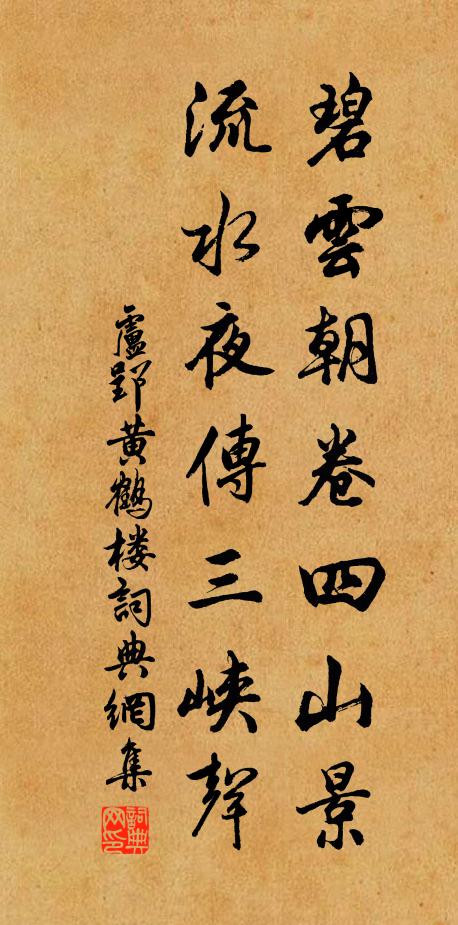 碧雲朝卷四山景
流水夜傳三峽聲
盧郢黃鶴楼詞典網集
詞典网印